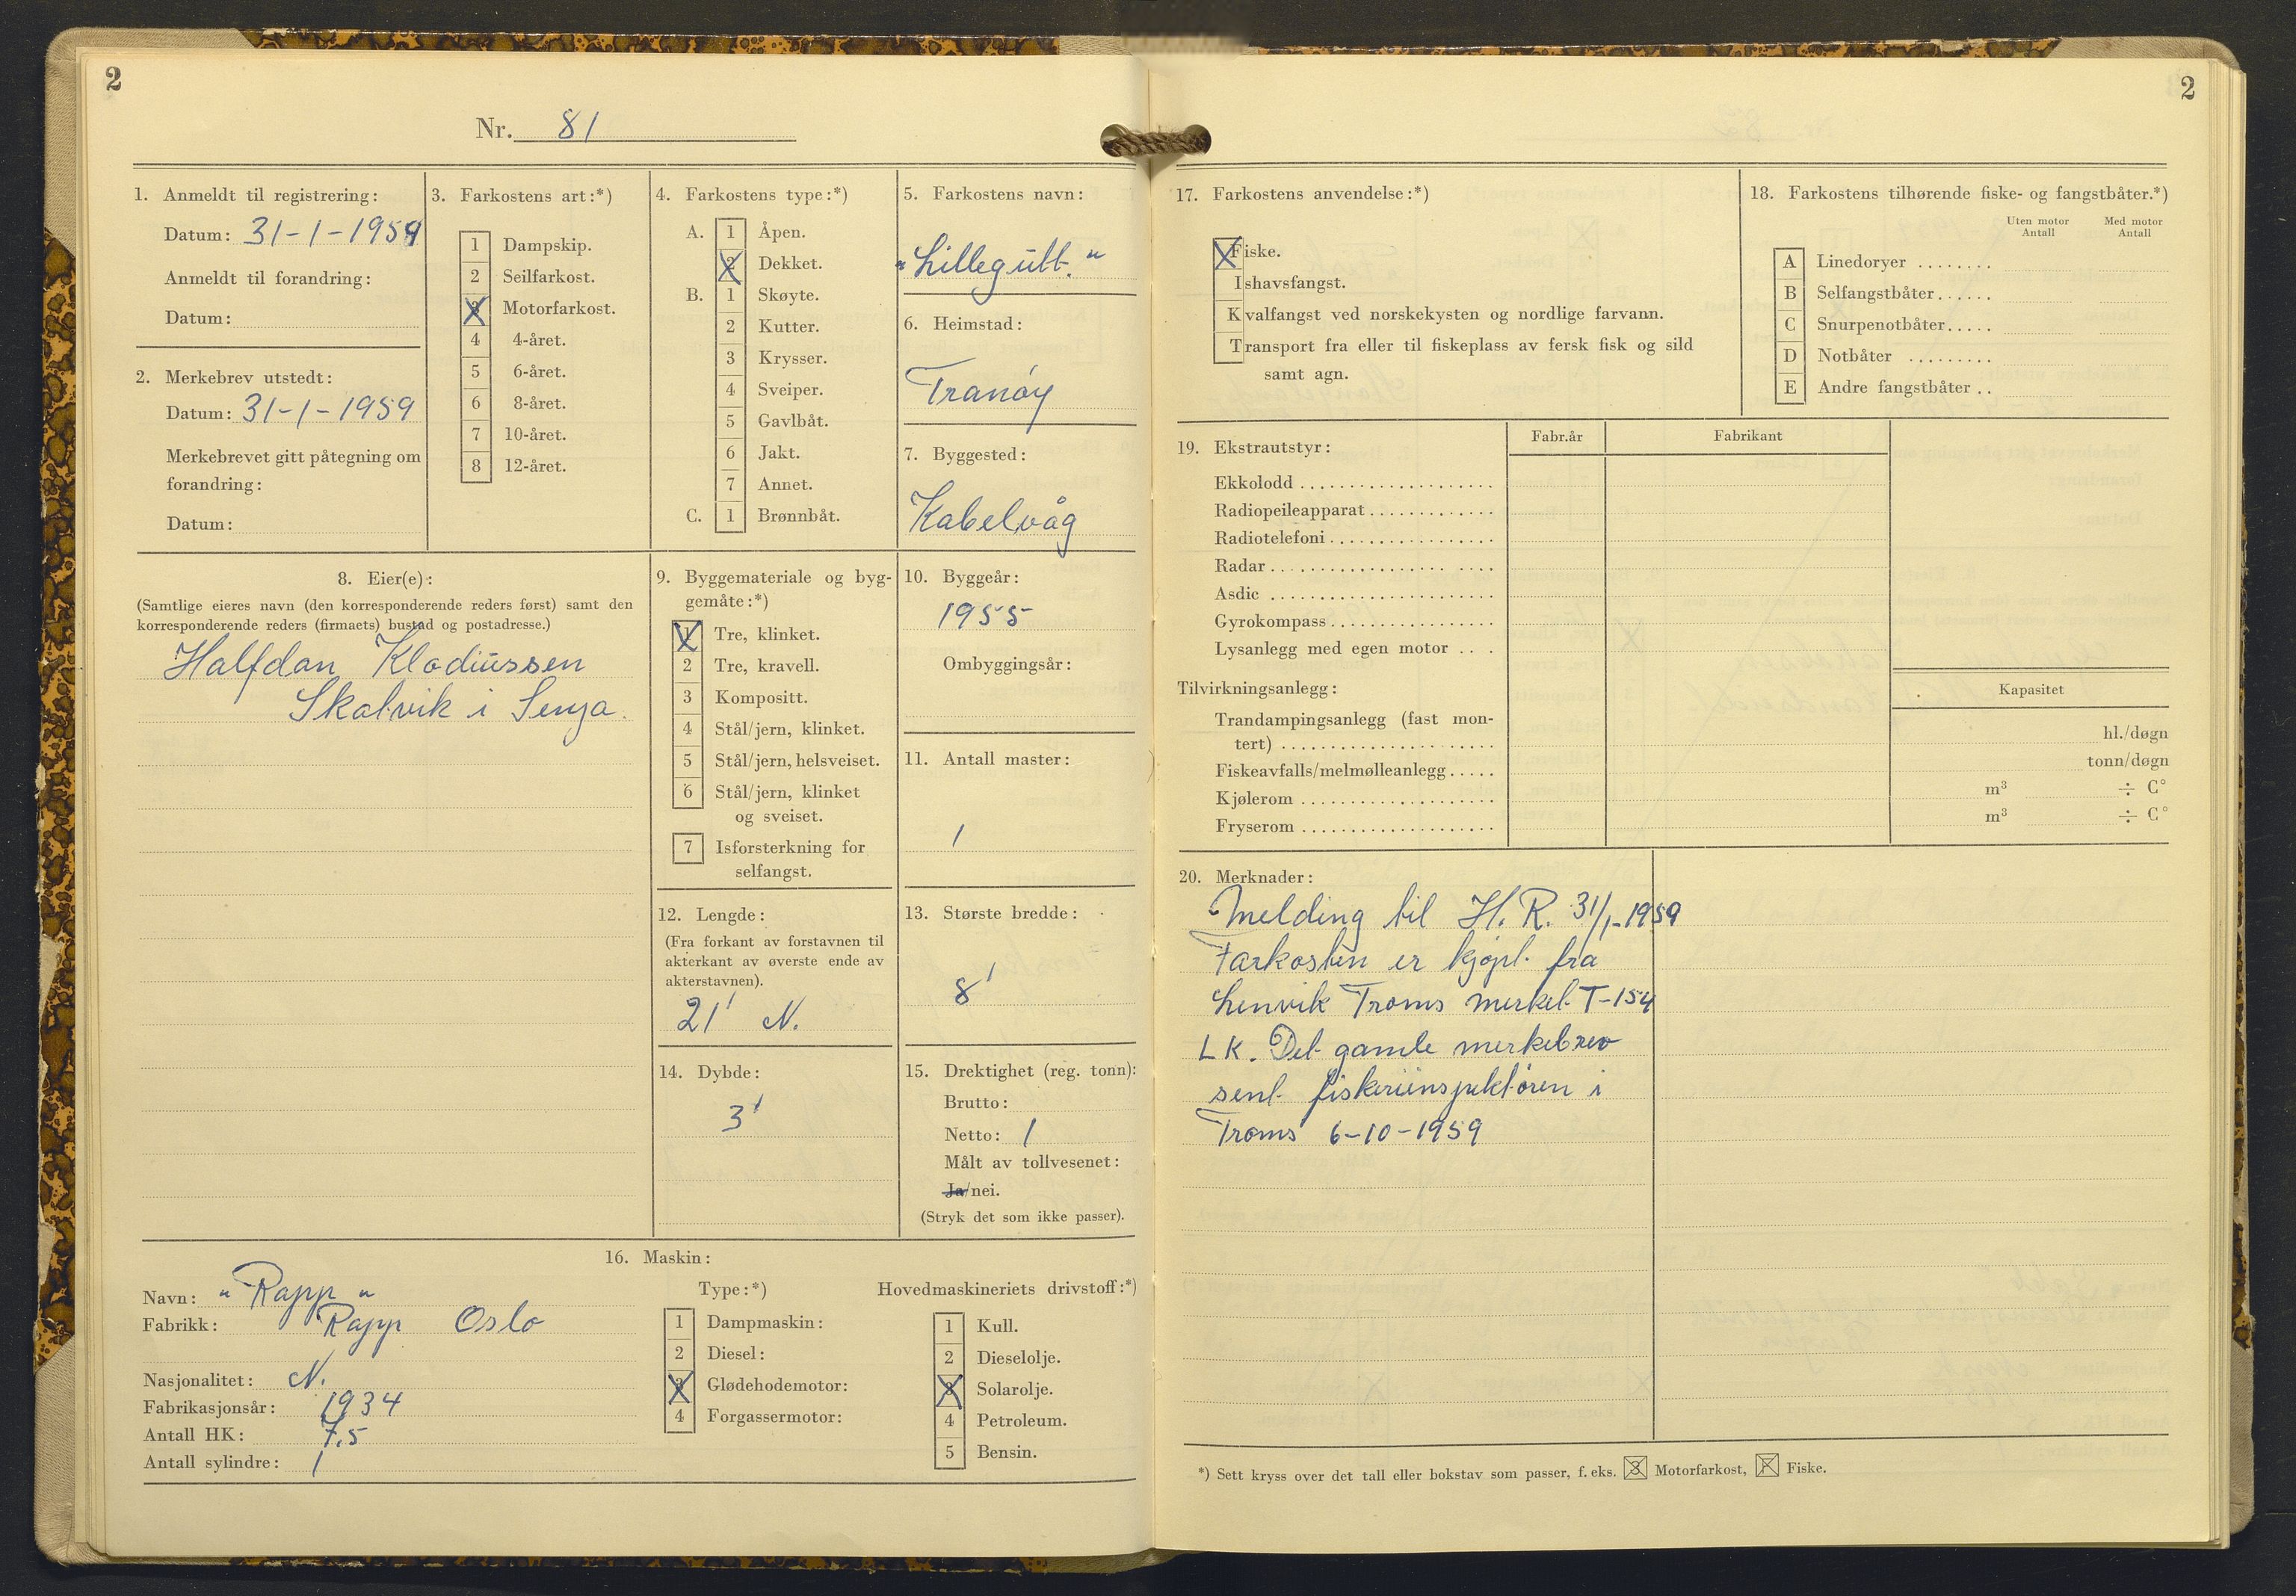 2
Nr. 81
1. Anmeldt til registrering:
Datum: 31-1-1959
Anmeldt til forandring:
Datum:
2. Merkebrev utstedt:
Datum: 31-1-1959
Merkebrevet gitt påtegning om
forandring:
Datum:
3. Farkostens art:*)
1 Dampskip.
2 Seilfarkost.
3 Motorfarkost.
4 4-året.
5 6-året.
6 8-året.
7 10-året.
8 12-året.
4. Farkostens type:*)
A. 1 Åpen.
2 Dekket.
B. 1 Skøyte.
2 Kutter.
3 Krysser.
4 Sveiper.
5 Gavlbåt.
6 Jakt.
7 Annet.
C. 1 Brønnbåt.
5. Farkostens navn:
"Lillegutt."
6. Heimstad:
Tranøy
7. Byggested:
Kabelvåg
8. Eier(e):
(Samtlige eieres navn (den korresponderende reders først) samt den
korresponderende reders (firmaets) bustad og postadresse.)
Halfdan Kladiussen
Skatvik i Senja.
9. Byggemateriale og byg-
gemåte:*)
1 Tre, klinket.
2 Tre, kravell.
3 Kompositt.
4 Stål/jern, klinket.
5 Stål/jern, helsveiset.
6 Stål/jern, klinket
og sveiset.
7 Isforsterkning for
selfangst.
10. Byggeår:
1955
Ombyggingsår:
11. Antall master:
1
12. Lengde:
(Fra forkant av forstavnen til
akterkant av øverste ende av
akterstavnen).
21' N.
13. Største bredde:
8'
14. Dybde:
3'
15. Drektighet (reg. tonn):
Brutto:
Netto: 1
Målt av tollvesenet:
Ja/nei.
(Stryk det som ikke passer).
16. Maskin:
Navn: "Rapp"
Fabrikk: Rapp Oslo
Nasjonalitet: N.
Fabrikasjonsår: 1934
Antall HK: 7.5
Antall sylindre: 1
Type:*)
1 Dampmaskin:
2 Diesel:
3 Glødehodemotor:
4 Forgassermotor:
Hovedmaskineriets drivstoff:*)
1 Kull.
2 Dieselolje.
3 Solarolje.
4 Petroleum.
5 Bensin.
2
17. Farkostens anvendelse:*)
Fiske.
Ishavsfangst.
Kvalfangst ved norskekysten og nordlige farvann.
Transport fra eller til fiskeplass av fersk fisk og sild
samt agn.
18. Farkostens tilhørende fiske- og fangstbåter.*)
Uten motor Antall
Med motor Antall
A Linedoryer ........
B Selfangstbåter......
C Snurpenotbåter.....
D Notbåter .........
E Andre fangstbåter ..
19. Ekstrautstyr:
Fabr.år Fabrikant
Ekkolodd ....................
Radiopeileapparat.............
Radiotelefoni.................
Radar.................. ....
Asdic .......................
Gyrokompass.................
Lysanlegg med egen motor ...
Tilvirkningsanlegg:
Kapasitet
Trandampingsanlegg (fast mon-
tert) ...................... hl./døgn
Fiskeavfalls/melmølleanlegg..... tonn/døgn
Kjølerom .................... m³ ÷ C°
Fryserom .................... m³ ÷ C°
20. Merknader:
Melding til H. R. 31/1-1959
Farkosten er kjøpt fra
Lenvik Troms merket T-154
LK. Det gamle merkebrev
sent fiskeriinspektøren i
Troms 6-10-1959
*) Sett kryss over det tall eller bokstav som passer, f. eks. 3 Motorfarkost, F Fiske.